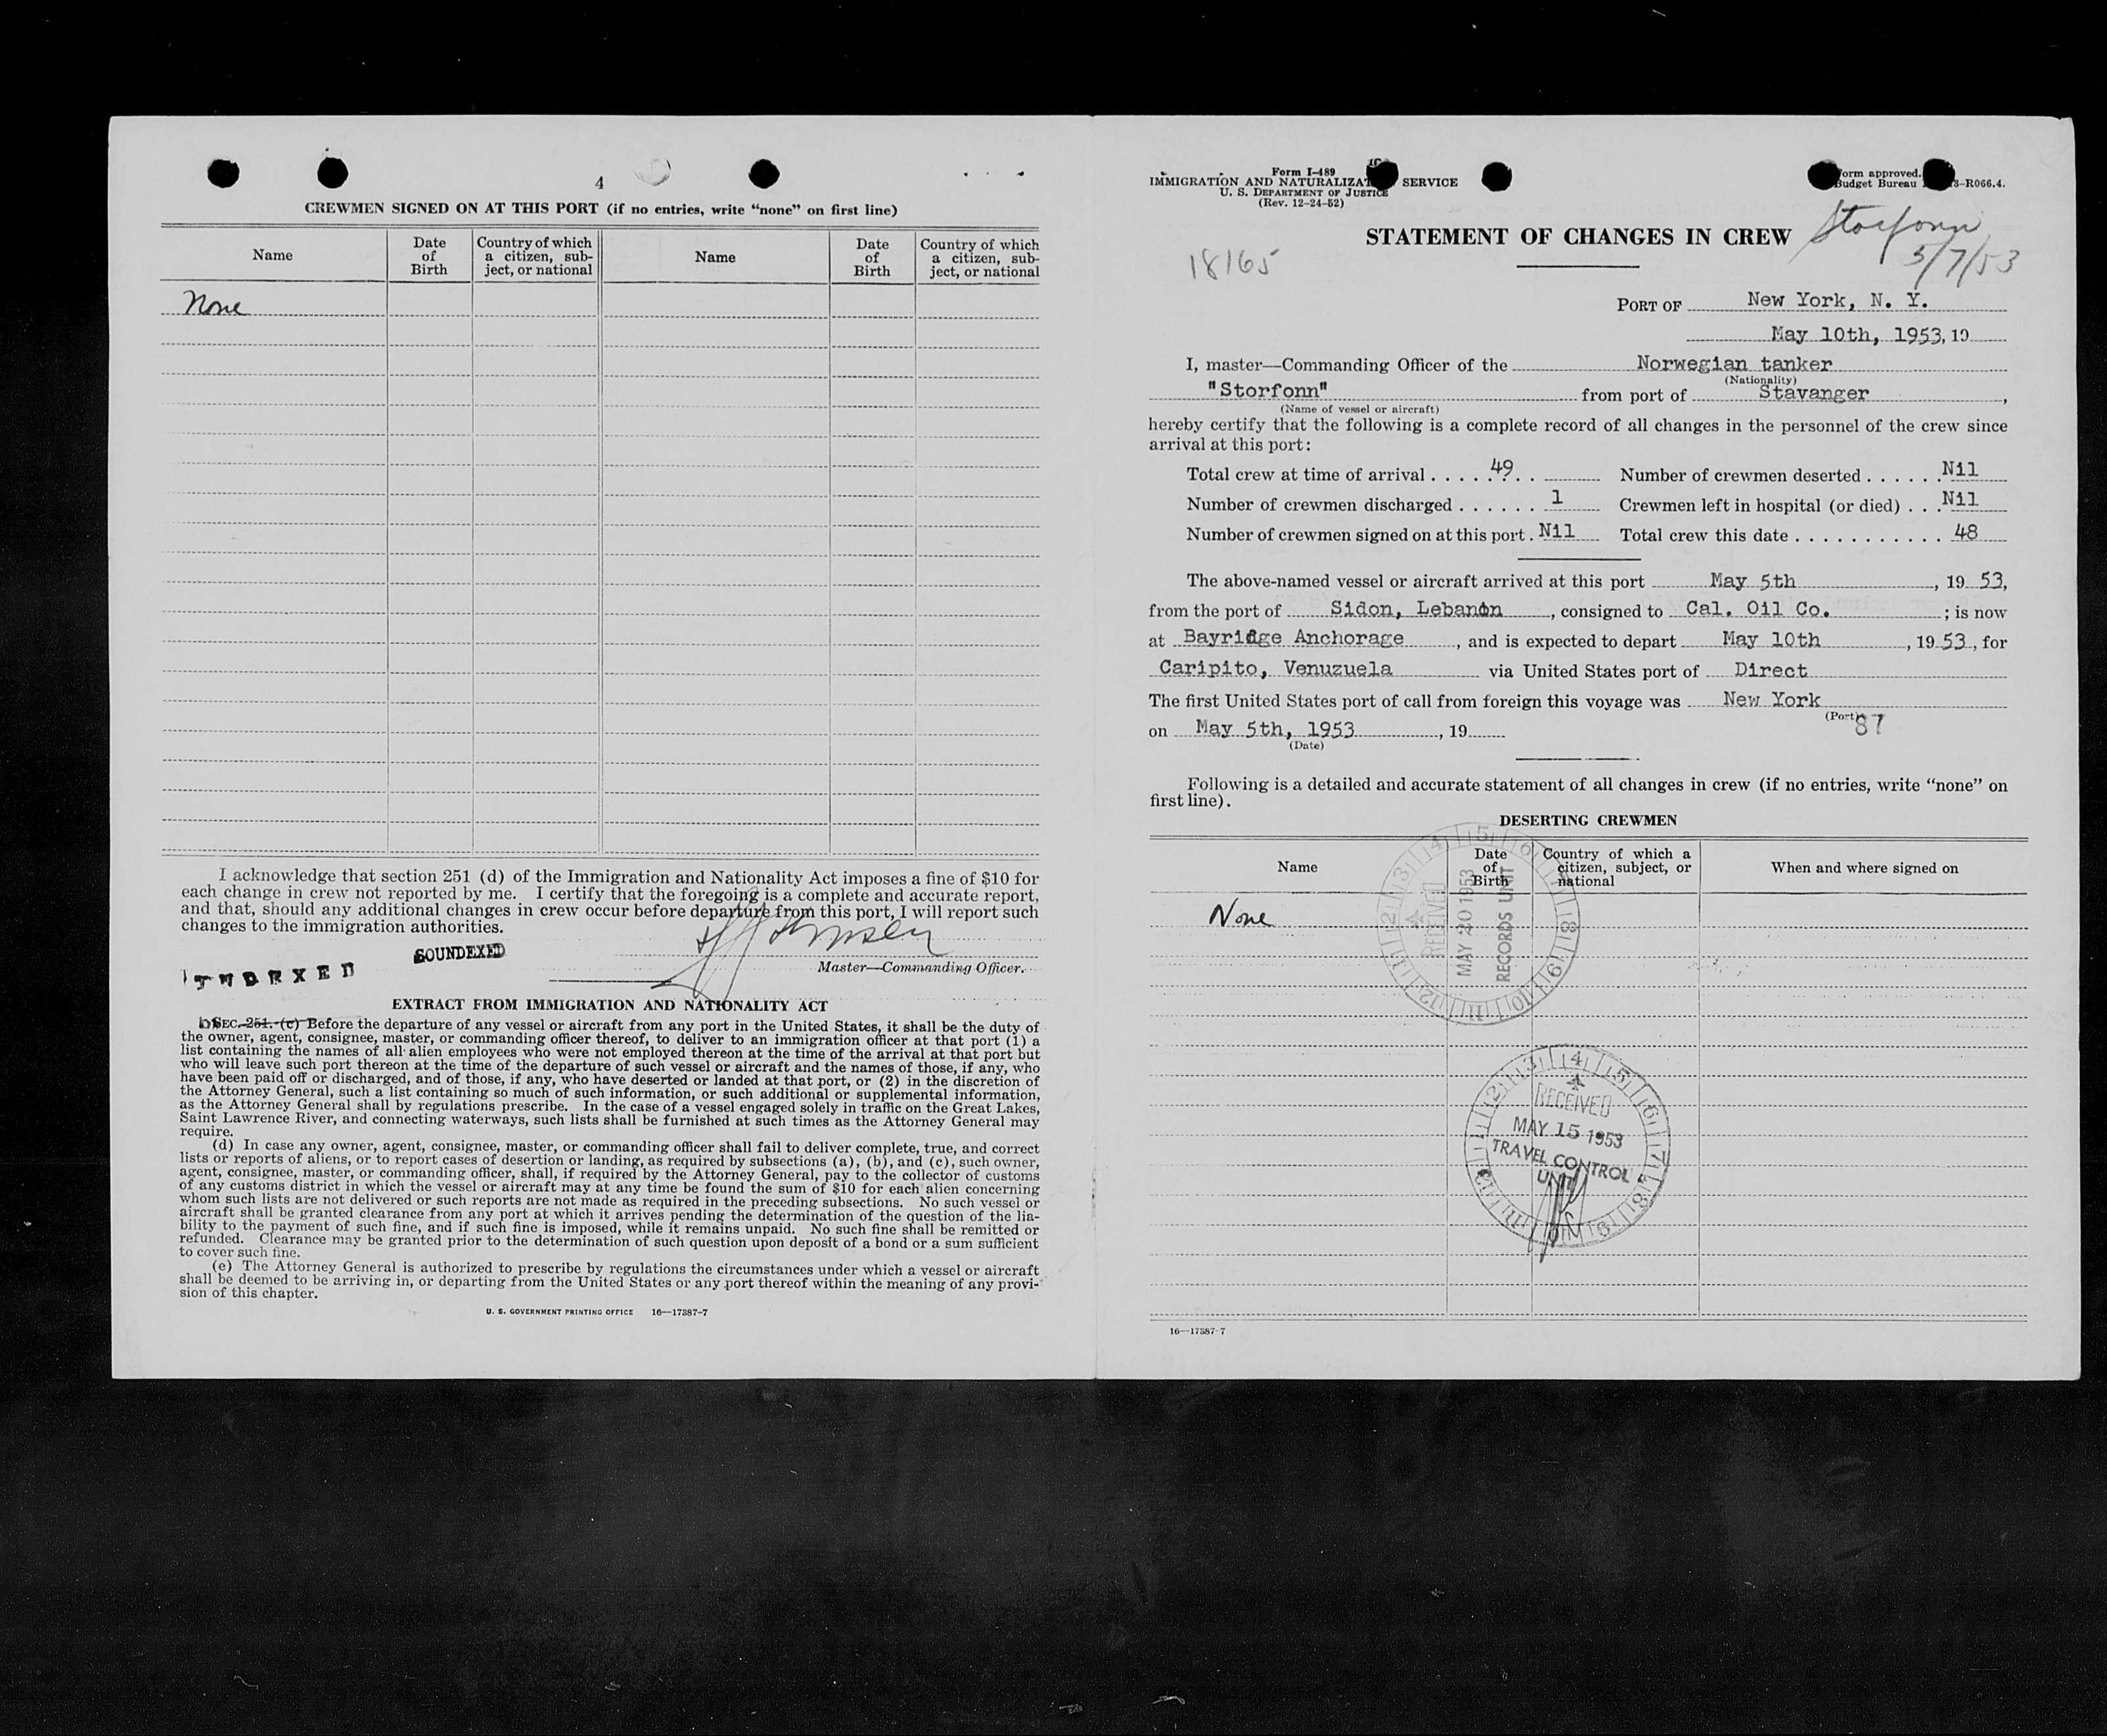 4
CREWMEN SIGNED ON AT THIS PORT (if no entries, write “none” on first line)
Name
Date of Birth
Country of which a citizen, sub-
ject, or national
Name
Date of Birth
Country of which a citizen, sub-
ject, or national
None
I acknowledge that section 251 (d) of the Immigration and Nationality Act imposes a fine of $10 for
each change in crew not reported by me. I certify that the foregoing is a complete and accurate report,
and that, should any additional changes in crew occur before departure from this port, I will report such
changes to the immigration authorities.
SOUNDEXED
INDEXED
Master—Commanding Officer.
EXTRACT FROM IMMIGRATION AND NATIONALITY ACT
SEC. 251. (c) Before the departure of any vessel or aircraft from any port in the United States, it shall be the duty of
the owner, agent, consignee, master, or commanding officer thereof, to deliver to an immigration officer at that port (1) a
list containing the names of all alien employees who were not employed thereon at the time of the arrival at that port but
who will leave such port thereon at the time of the departure of such vessel or aircraft and the names of those, if any, who
have been paid off or discharged, and of those, if any, who have deserted or landed at that port, or (2) in the discretion of
the Attorney General, such a list containing so much of such information, or such additional or supplemental information,
as the Attorney General shall by regulations prescribe. In the case of a vessel engaged solely in traffic on the Great Lakes,
Saint Lawrence River, and connecting waterways, such lists shall be furnished at such times as the Attorney General may
require.
(d) In case any owner, agent, consignee, master, or commanding officer shall fail to deliver complete, true, and correct
lists or reports of aliens, or to report cases of desertion or landing, as required by subsections (a), (b), and (c), such owner,
agent, consignee, master, or commanding officer, shall, if required by the Attorney General, pay to the collector of customs
of any customs district in which the vessel or aircraft may at any time be found the sum of $10 for each alien concerning
whom such lists are not delivered or such reports are not made as required in the preceding subsections. No such vessel or
aircraft shall be granted clearance from any port at which it arrives pending the determination of the question of the lia-
bility to the payment of such fine, and if such fine is imposed, while it remains unpaid. No such fine shall be remitted or
refunded. Clearance may be granted prior to the determination of such question upon deposit of a bond or a sum sufficient
to cover such fine.
(e) The Attorney General is authorized to prescribe by regulations the circumstances under which a vessel or aircraft
shall be deemed to be arriving in, or departing from the United States or any port thereof within the meaning of any provi-
sion of this chapter.
U. S. GOVERNMENT PRINTING OFFICE 16—17387-7
Form I-489
IMMIGRATION AND NATURALIZAT SERVICE
U. S. DEPARTMENT OF JUSTICE
(Rev. 12-24-52)
orm approved.
Budget Bureau 3-R066.4.
STATEMENT OF CHANGES IN CREW
Storfonn
5/7/53
18165
PORT OF New York, N. Y.
May 10th, 1953, 19
I, master—Commanding Officer of the Norwegian tanker
(Nationality)
"Storfonn" from port of Stavanger,
(Name of vessel or aircraft)
hereby certify that the following is a complete record of all changes in the personnel of the crew since
arrival at this port:
Total crew at time of arrival . . . . . 49 . . Number of crewmen deserted . . . . . . Nil
Number of crewmen discharged . . . . . . 1 Crewmen left in hospital (or died) . . . Nil
Number of crewmen signed on at this port . Nil Total crew this date . . . . . . . . . . . 48
The above-named vessel or aircraft arrived at this port May 5th, 19 53,
from the port of Sidon, Lebanon, consigned to Cal. Oil Co. ; is now
at Bayridge Anchorage, and is expected to depart May 10th, 19 53, for
Caripito, Venuzuela via United States port of Direct
The first United States port of call from foreign this voyage was New York
(Port)
87
on May 5th, 1953, 19
(Date)
Following is a detailed and accurate statement of all changes in crew (if no entries, write “none” on
first line).
DESERTING CREWMEN
Name
Date of Birth
Country of which a citizen, subject, or national
When and where signed on
None
RECEIVED
MAY 20 1953
RECORDS UNIT
RECEIVED
MAY 15 1953
TRAVEL CONTROL
UNIT
16—17387-7